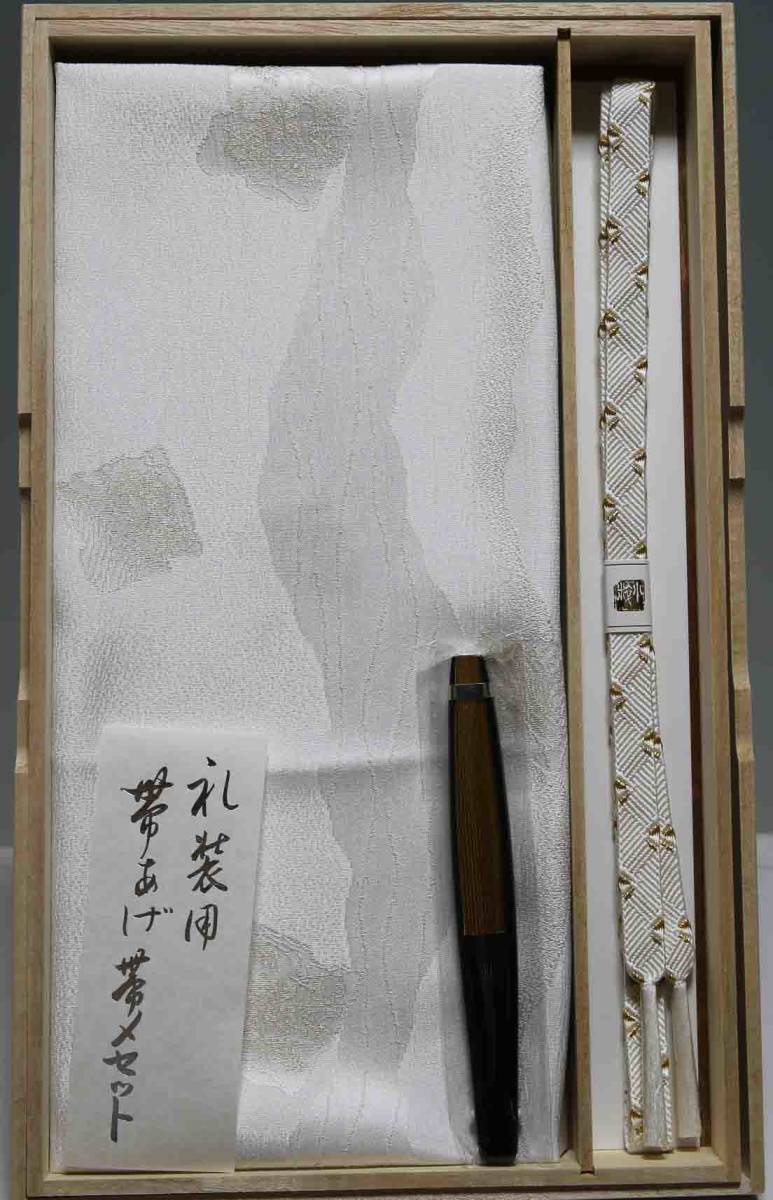 礼装用
帯あげ帯〆セット